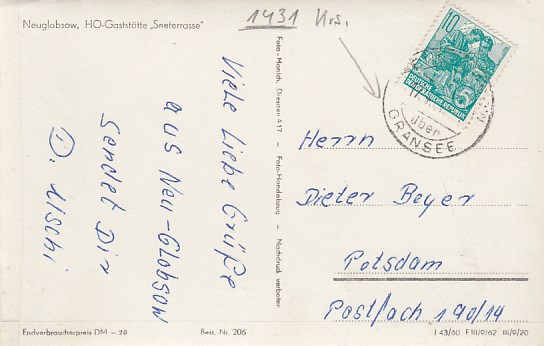 Neuglobsow, HO-Gaststätte „Seeterrasse"
1431 Krs.
Viele liebe Grüße
aus Neu-Globsow
sendet Dir
D. Uschi
Foto-Handabzug – Nachdruck verboten
10
5
DEUTSCHE DEMOKRATISCHE REPUBLIK
über
GRANSEE
Herrn
Dieter Beyer
Potsdam
Postfach 190/14
Endverbraucherpreis DM –.20
Best. Nr. 206
I 43/60 F III/9/62 III/9/20